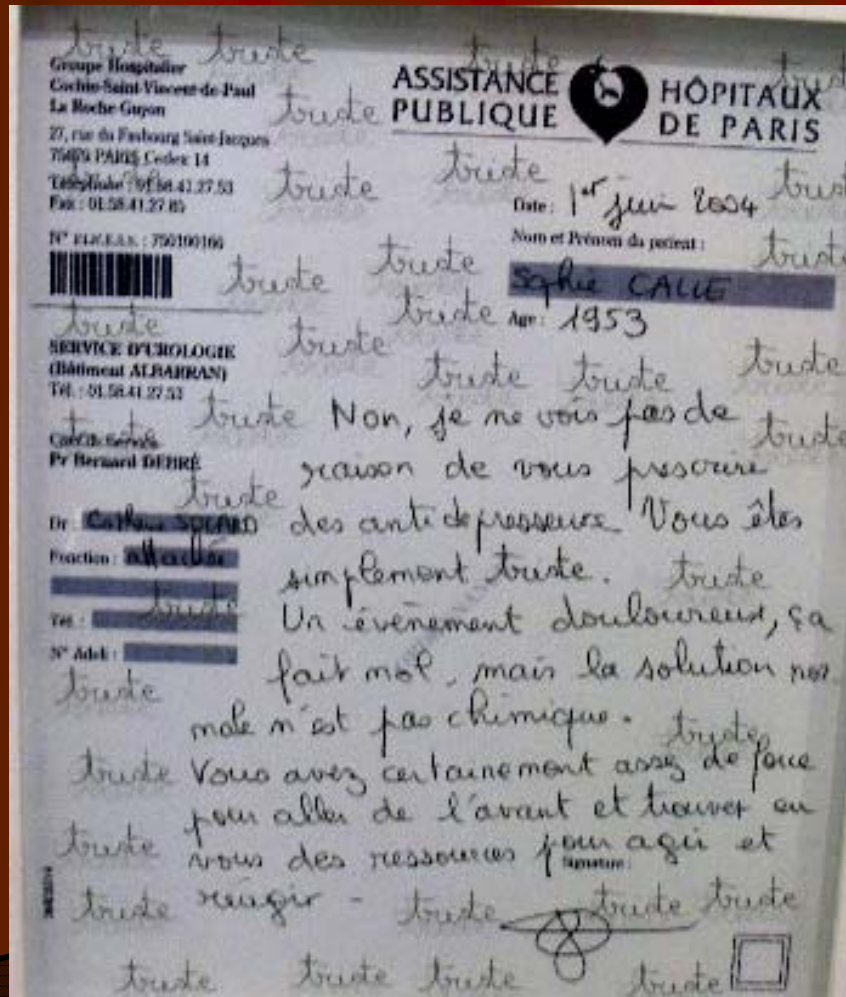 triste triste triste triste
Groupe Hospitalier
Cochin-Saint-Vincent-de-Paul
La Roche Guyon
27, rue du Faubourg Saint-Jacques
75679 PARIS Cedex 14
Téléphone : 01.58.41.27.53
Fax : 01.58.41.27.65
N° F.I.N.E.S.S. : 750100166
ASSISTANCE PUBLIQUE
HÔPITAUX DE PARIS
triste
triste triste triste
Date : 1er juin 2004
Nom et Prénom du patient :
triste triste triste
Sophie CALLE
triste triste
Age : 1953
triste
SERVICE D'UROLOGIE
(Bâtiment ALBARRAN)
Tél. : 01.58.41.27.53
triste triste triste
triste triste
Chef de Service
Pr Bernard DEBRÉ
triste
triste
Dr
Fonction : attachée
Tél :
N° Adeli :
Non, je ne vois pas de
raison de vous prescrire
des antidepresseurs Vous êtes
simplement triste. triste
triste
Un évènement douloureux, ça
fait mal, mais la solution nor
triste
male n'est pas chimique. triste
triste Vous avez certainement assez de force
pour aller de l'avant et trouver en
triste vous des ressources pour agir et
Signature :
triste réagir - triste triste triste
triste triste triste triste